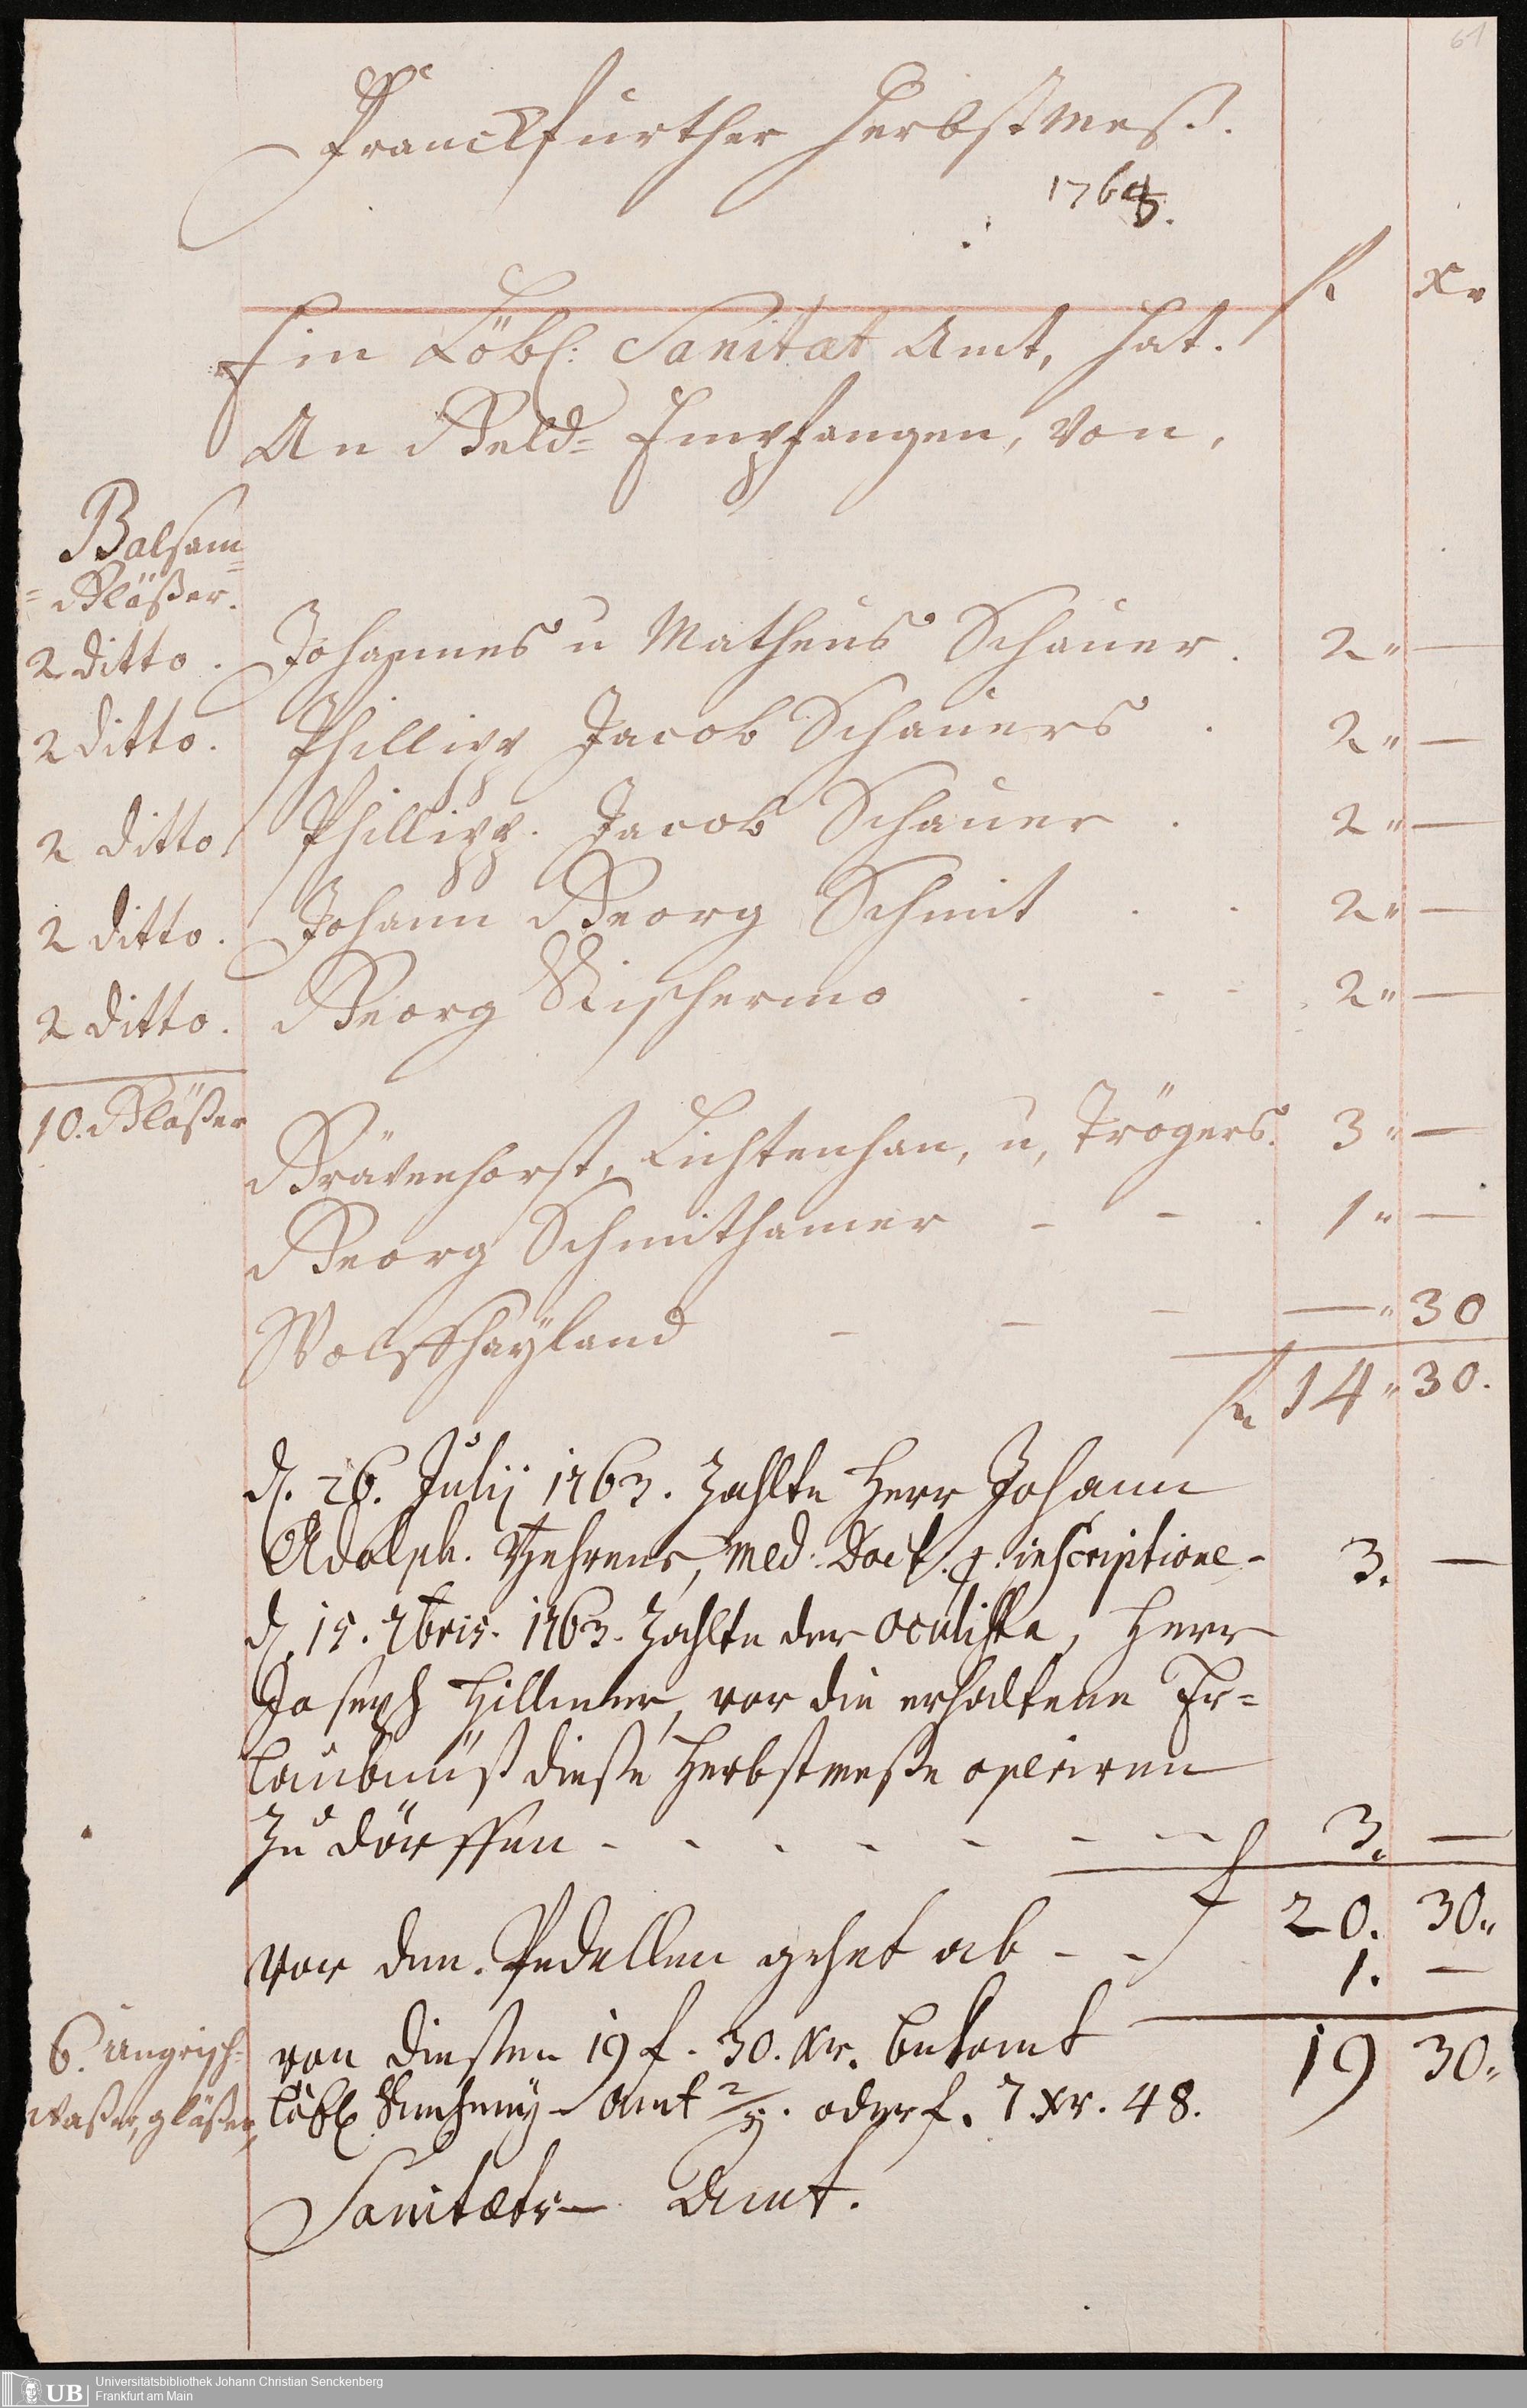 61
Franckfurther Herbstmeß.
1763.
f. xr.
Ein Löbl: Sanitat Amt, hat.
An Geld= Empfangen, von,
Balsam=
=Gläßer.
2 ditto. Johannes u Matheus Schauer. 2 " —
2 ditto. Phillipp Jacob Schauers . 2 " —
2 ditto. Phillipp. Jacob Schauer . 2 " —
2 ditto. Johann Georg Schmit . . 2 " —
2 ditto. Georg . - - 2 " —
10. Gläßer
Grävenhorst, Lichtenhan, u, Trögers. 3 " —
Georg Schmithamer - - . 1 " —
Wolff Hayland - - - — " 30
f. 14 " 30.
d. 26. Julij 1763. Zahlte Herr Johann
Adolph. Behrens, Med: Doct. p. inscriptione - 3. —
d. 15. 7bris. 1763. Zahlte der Oculiste, Herr
Joseph Hillmer, vor die erhaltene Er=
laubnüß diese Herbstmeße operiren
zu dörffen - - - - - - - 3. —
f 20. 30"
vor den. Pedellen gehet ab - - 1. —
19 30"
6. Ungrisch=
waßer, gläßer,
von diesen 19 f. 30. xr. bekomt
löbl. Rechney - Amt 2/5. oder f. 7. xr. 48.
Sanitæts - Amt.
UB Universitätsbibliothek Johann Christian Senckenberg
Frankfurt am Main